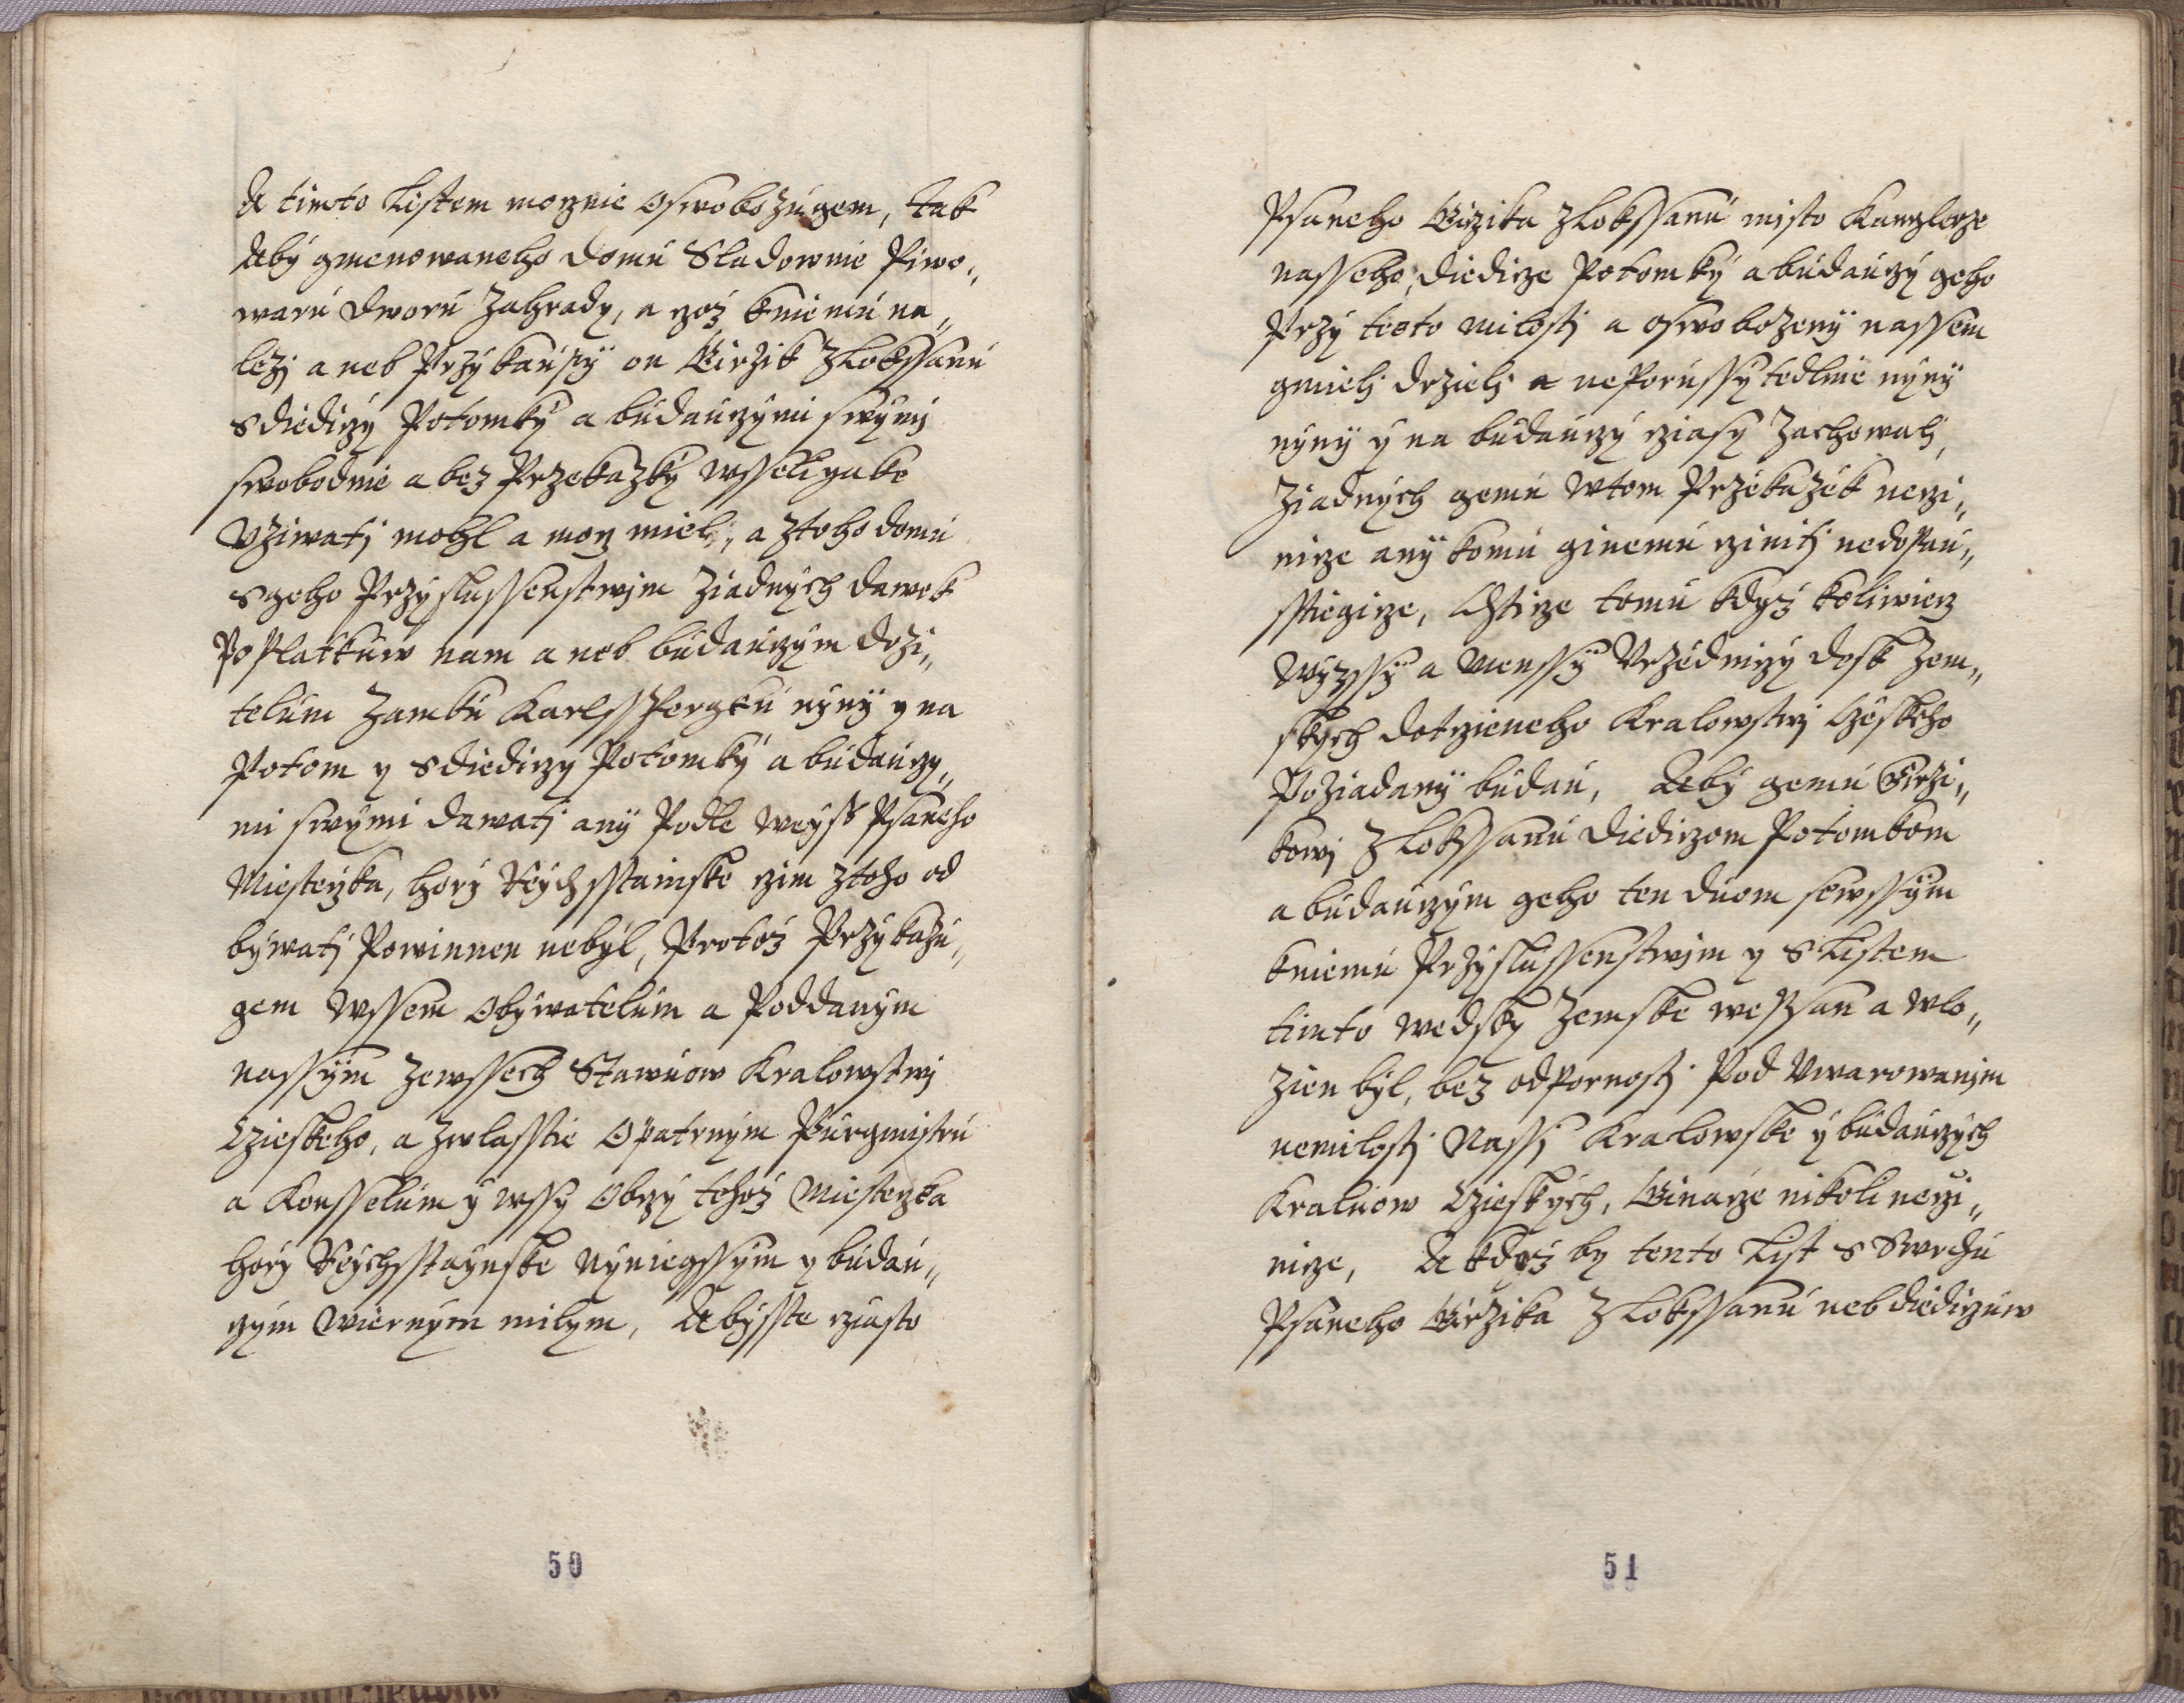 A timto Listem moznie oswobozugem, tak
Aby gmenowaneho domu Sladownie Piwo„
waru dworu Zahrady, a zoz kniemu na„
lezj aneb Przykaupÿ on Girzik Zlokssanu
s diediczy Potomky a budauczymi swymi
swobodnie a bez Przekazky wsseligake
Vziwatj mohl a mocz miel, a ztoho domu
s geho Przyslussenstwjm ziadnych dawek
Poplatkuw nam aneb budauczym drzi„
telum Zamku Karlsspergku nynÿ y na
Potom y s diediczy Potomky a budauczy„
mi swymi dawatj anÿ Podle weyss Psaneho
Miesteczka, hory Reychsstainske czim ztoho od
bywatj Powinnen nebyl, Protoz Przykazu„
gem Wssem Obywatelum a Poddanym
nassym Zewssech Stawuow Kralowstwj
Czieskeho, a zwlasstie Opatrnym Purgmistru
a Konsselum y wssy Obczy tehoz Miesteczka
hory Reychsstaynske Nyniegssym y budau„
czym Wiernym milym, Abysste cziasto
50
Psaneho Girzika Zlokssanu misto Kanzlerze
nasseho, diedicze Potomky a budauczy geho
Przy teoto milostj a oswobozenÿ nassem
gmielj drzielj a neporussytedlnie nynÿ
nynÿ y na budauczy cziasy Zachowalj,
Ziadnych gemu wtom Przekazek neczi„
nicze anÿ komu ginemu czinitj nedopau„
sstiegicze, Chticze tomu kdyz koliwiecz
Wyzssy a Menssy Vrzednicy desk Zem„
skych dotczieneho Kralowstwj Czeskeho
Poziadanÿ budau, Aby gemu Girzi„
kowj Zlokssanu diediczom Potomkom
a budauczym geho ten duom sewssym
kniemu Przyslussenstwjm y s Listem
timto wedsky Zemske wepsan a wlo„
zien byl, bez odpornostj Pod Vwarowanjm
nemilostj Nassj Kralowske y budauczych
Kraluow Czieskych, Ginacze nikoli neczi„
nicze, A kdoz by tento List s Swrchu
Psaneho Girzika Zlokssanu neb diediczuw
51